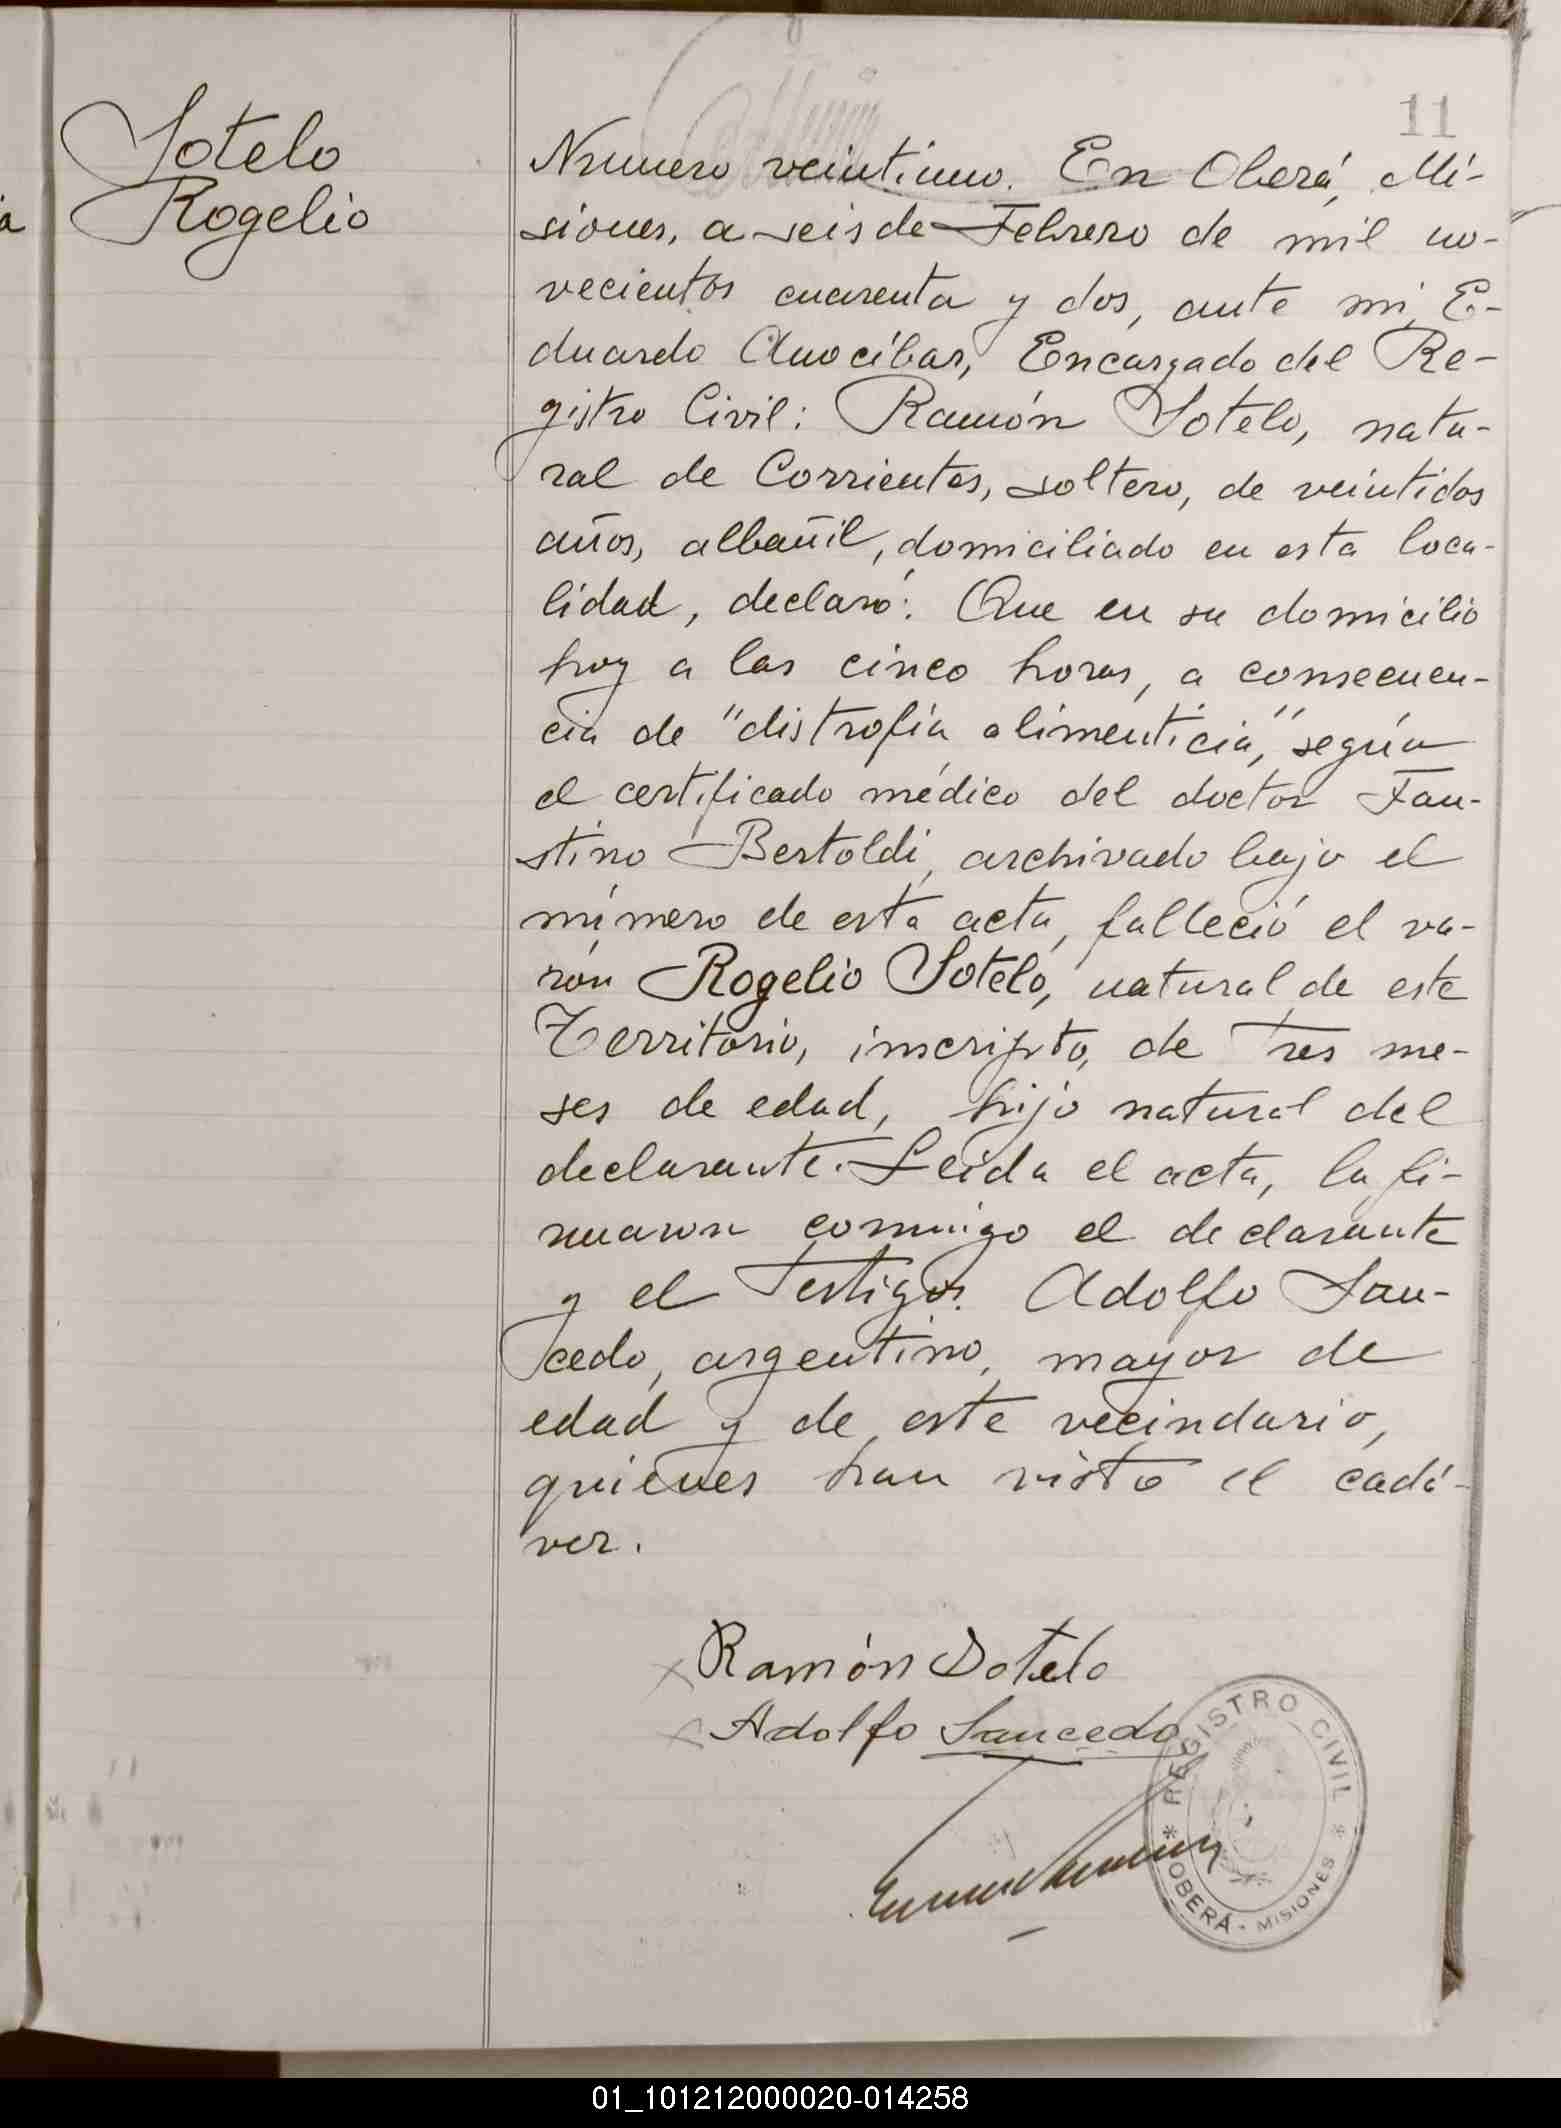 11
Sotelo
Rogelio
Número veintiuno. En Oberá, Mi-
siones, a seis de Febrero de mil no-
vecientos cuarenta y dos, ante mi, E-
duardo Anocíbar, Encargado del Re-
gistro Civil: Ramón Sotelo, natu-
ral de Corrientes, soltero, de veintidos
años, albañil, domiciliado en esta loca-
lidad, declaró: Que en su domicilio
hoy a las cinco horas, a consecuen-
cia de "distrofia alimenticia", según
el certificado médico del doctor Fau-
stino Bertoldi, archivado bajo el
número de esta acta, falleció el va-
rón Rogelio Sotelo, natural de este
Territorio, inscripto, de tres me-
ses de edad, hijo natural del
declarante. Leída el acta, la fi-
rmaron conmigo el declarante
y el testigo. Adolfo Sau-
cedo, argentino, mayor de
edad y de este vecindario,
quienes han visto el cadá-
ver.
Ramón Sotelo
Adolfo Saucedo
REGISTRO CIVIL
* OBERÁ - MISIONES *
01_101212000020-014258